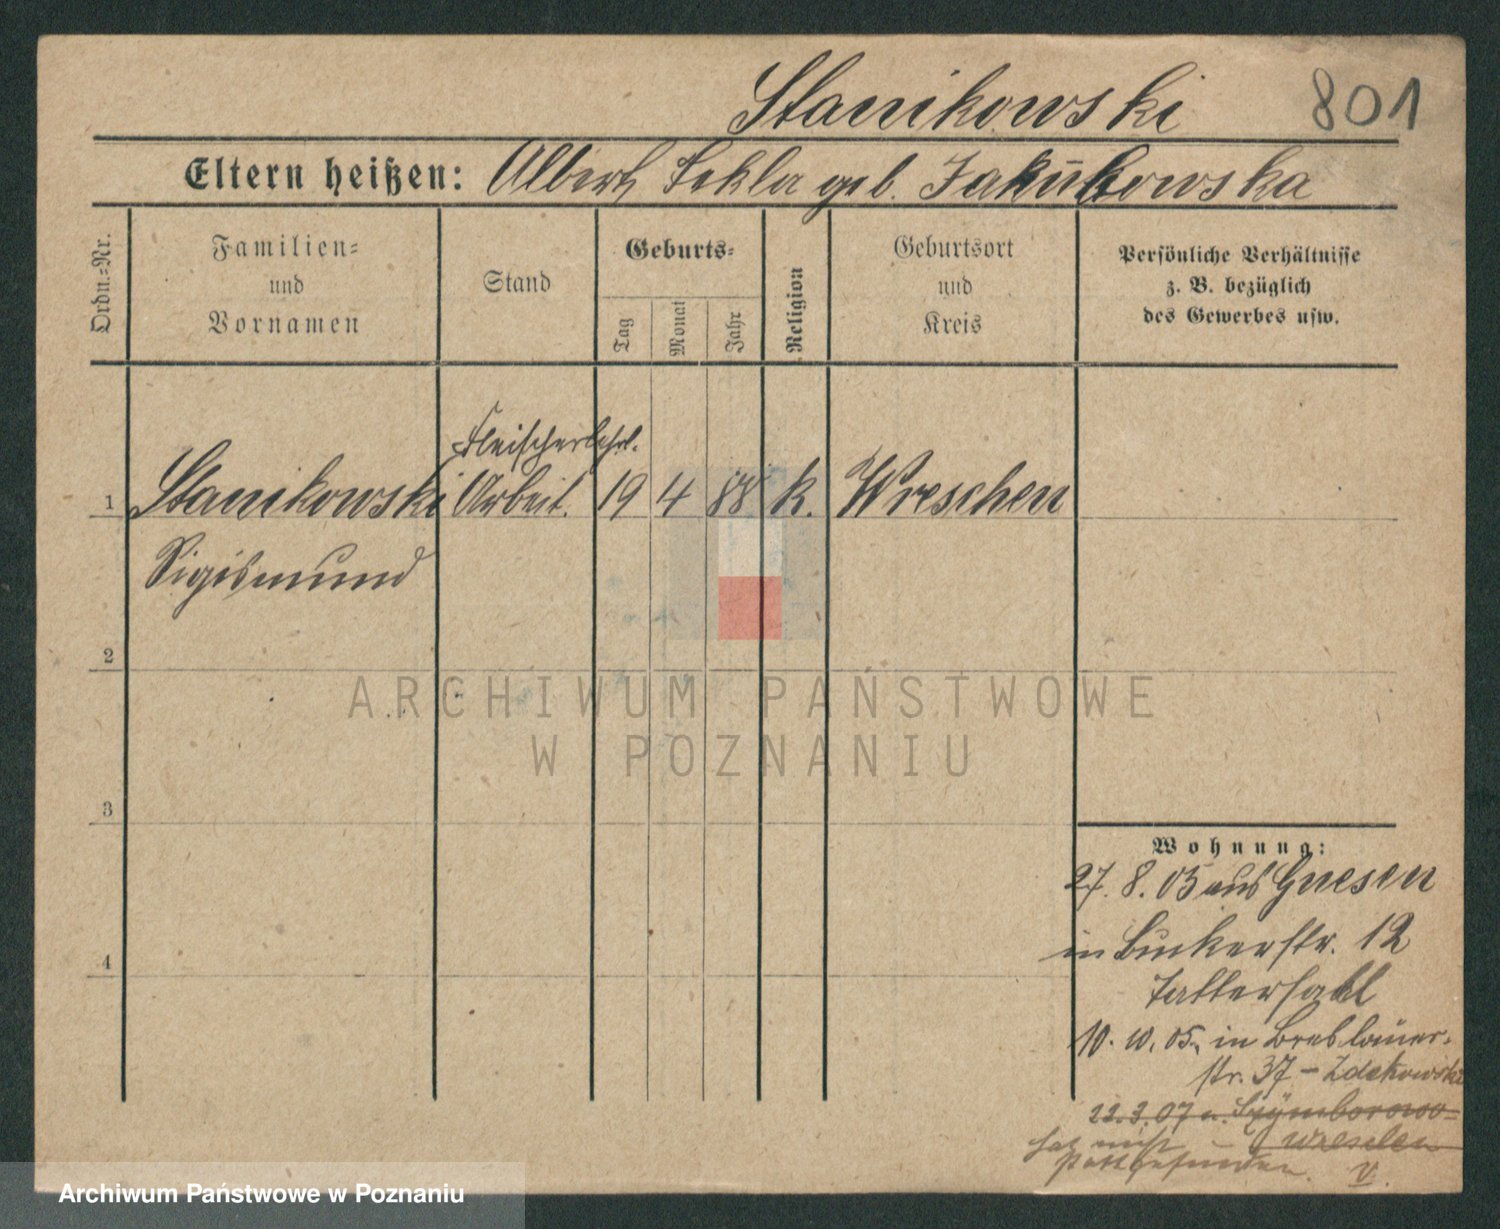 Stanikowski 801
Eltern heißen: Albert Tekla geb. Jakubowska
Ordn.-Nr.
Familien-
und
Vornamen
Stand
Geburts-
Tag
Monat
Jahr
Religion
Geburtsort
und
Kreis
Persönliche Verhältnisse
z. B. bezüglich
des Gewerbes usw.
Fleischerlehrl.
1 Stanikowski Arbeit. 19 4 88 k. Wreschen
Sigismund
2
ARCHIWUM PAŃSTWOWE
W POZNANIU
3
Wohnung:
27. 8. 05 aus Gnesen
in Bukerstr. 12
Tattersall
10. 10. 05. in Breslauer-
str. 37 –
22.3.07 n.
hat nicht – Wreschen
stattgefunden. V.
4
Archiwum Państwowe w Poznaniu